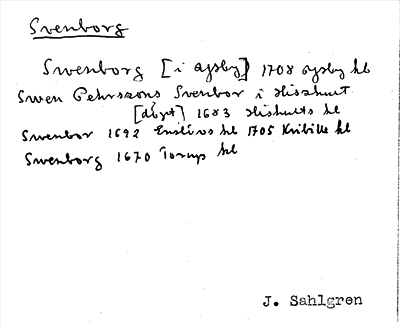 Svenborg
Swenborg [i Aysby] 1708 Aysby kl
Swen Pehrszons Svenbor i Hiszhult
[döpt] 1683 Hishults kl
Swenbor 1692 Enslövs kl 1705 Kvibille kl
Swenborg 1670 Torups kl
J. Sahlgren